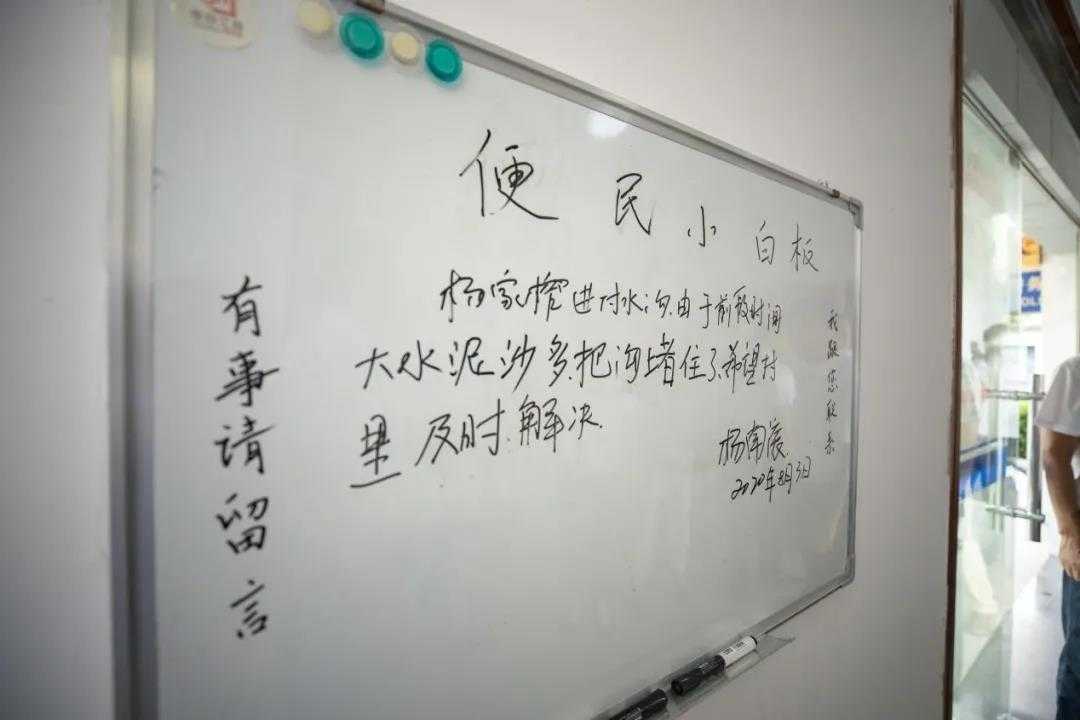 便民小白板
有事请留言
杨家榨进村水沟.由于前段时间
大水泥沙多.把沟堵住了.希望村
里及时解决.
杨南
2020年8月3日
我跟您联系